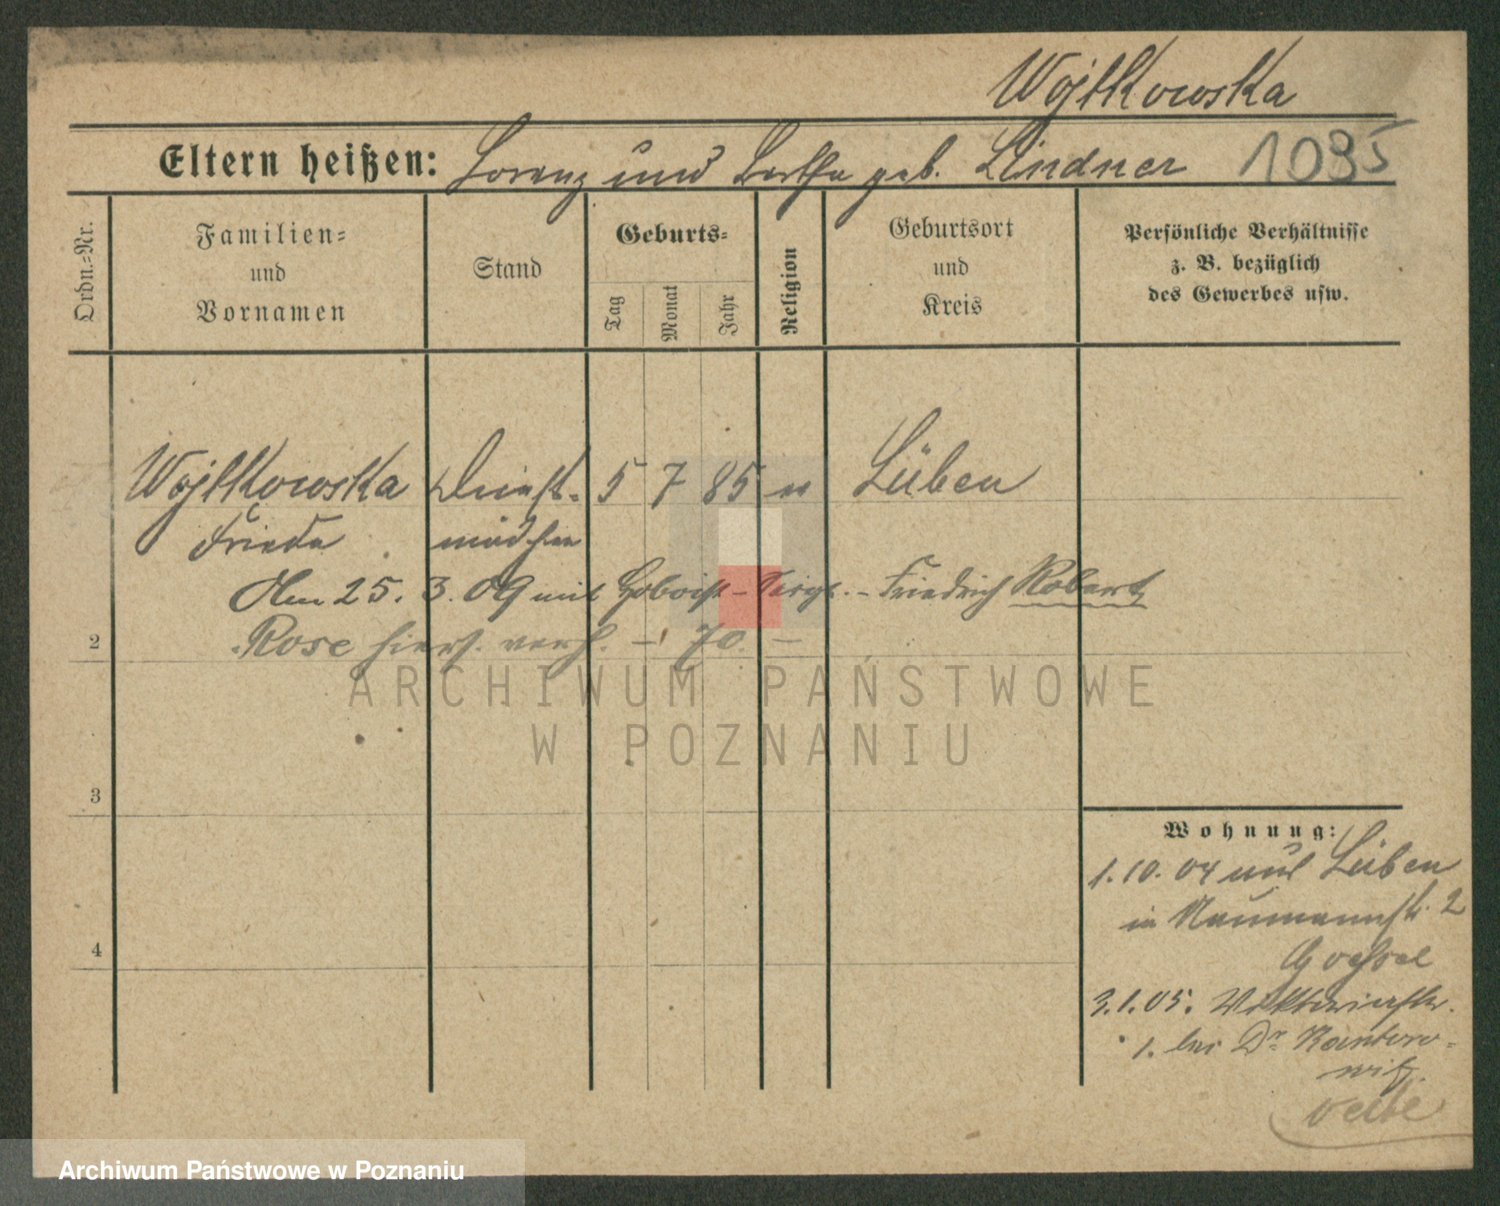 Wojtkowska
Eltern heißen: Lorenz und Bertha geb. Lindner 1095
Ordn.-Nr.
Familien-
und
Vornamen
Stand
Geburts-
Tag
Monat
Jahr
Religion
Geburtsort
und
Kreis
Persönliche Verhältnisse
z. B. bezüglich
des Gewerbes usw.
Wojtkowska Dienst- 5 7 85 Lüben
Frieda mädchen
Am 25. 3. 09 mit Hoboist-Sergt. - Friedrich Robert
2
Rose hiers. verh. - 70. -
ARCHIWUM PAŃSTWOWE
W POZNANIU
3
4
Wohnung:
1. 10. 04 aus Lüben
in Naumannstr. 2
3. 1. 05. Viktoriastr.
1. bei Dr. Kantoro-
witz
Archiwum Państwowe w Poznaniu